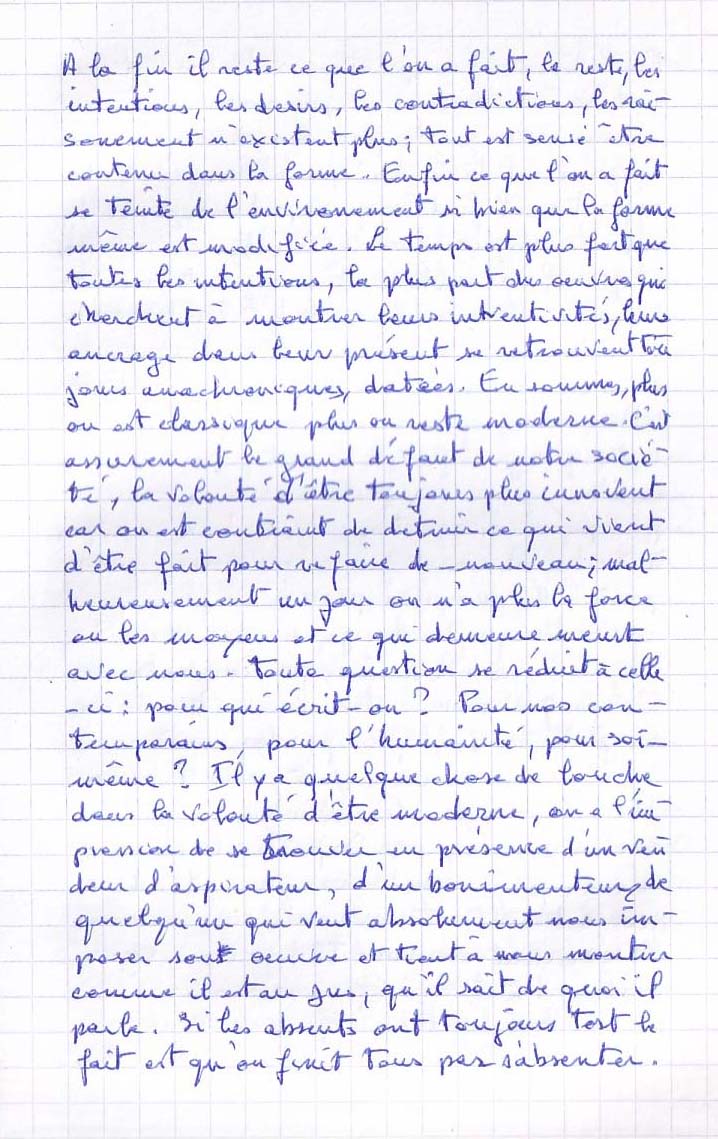 A la fin il reste ce que l'on a fait, le reste, les
intentions, les desirs, les contradictions, les rai-
sonnement n'existent plus; tout est sensé être
contenu dans la forme. Enfin ce que l'on a fait
se teinte de l'environement si bien que la forme
même est modifiée. Le temps est plus fort que
toutes les intentions, la plus part des oeuvres qui
cherchent à montrer leurs inventivités, leurs
ancrage dans leur présent se retrouvent tou
jours anachroniques, datées. En sommes, plus
on est classique plus on reste moderne. C'est
assurement le grand défaut de notre socié-
té, la volonté d'être toujours plus innovent
car on est contraint de detruir ce qui vient
d'être fait pour refaire de-nouveau; mal-
heureusement un jour on n'a plus la force
ou les moyens et ce qui demeure meurt
avec nous. Toute question se réduit à celle
-ci: pour qui écrit-on? Pour nos con-
temporains, pour l'humanité, pour soi-
même? Il y a quelque chose de louche
dans la volonté d'être moderne, on a l'im
pression de se trouver en présence d'un ven
deur d'aspirateur, d'un bonimenteur, de
quelqu'un qui veut absolument nous im-
poser son oeuvre et tient à nous montrer
comme il est au jus, qu'il sait de quoi il
parle. Si les absents ont toujours tort le
fait est qu'on finit tous par s'absenter.